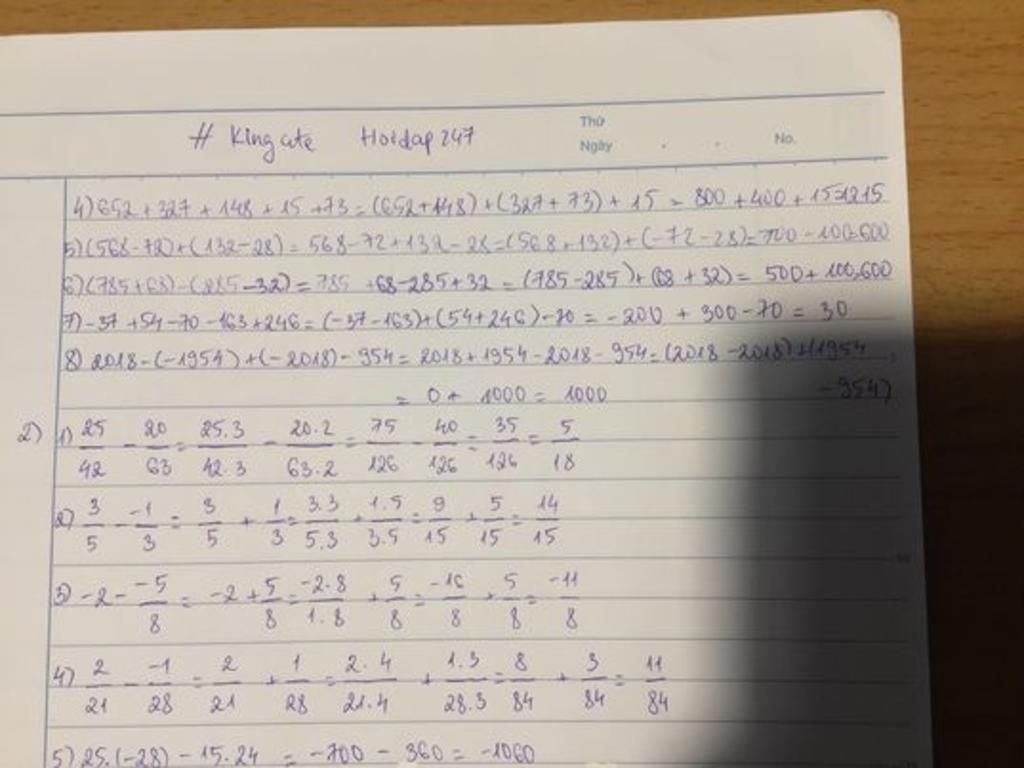 # Kingcte Hoidap247
Thứ
Ngày . . No.
4) 652 + 327 + 148 + 15 + 73 = (652 + 148) + (327 + 73) + 15 = 800 + 400 + 15 = 1215
5) (568 - 72) + (132 - 28) = 568 - 72 + 132 - 28 = (568 + 132) + (-72 - 28) = 700 - 100 = 600
6) (785 + 68) - (285 - 32) = 785 + 68 - 285 + 32 = (785 - 285) + (68 + 32) = 500 + 100 = 600
7) -37 + 54 - 70 - 163 + 246 = (-37 - 163) + (54 + 246) - 70 = -200 + 300 - 70 = 30
8) 2018 - (-1954) + (-2018) - 954 = 2018 + 1954 - 2018 - 954 = (2018 - 2018) + (1954 - 954)
= 0 + 1000 = 1000
2) 1) 25/42 - 20/63 = 25.3/42.3 - 20.2/63.2 = 75/126 - 40/126 = 35/126 = 5/18
2) 3/5 - -1/3 = 3/5 + 1/3 = 3.3/5.3 + 1.5/3.5 = 9/15 + 5/15 = 14/15
3) -2 - -5/8 = -2 + 5/8 = -2.8/1.8 + 5/8 = -16/8 + 5/8 = -11/8
4) 2/21 - -1/28 = 2/21 + 1/28 = 2.4/21.4 + 1.3/28.3 = 8/84 + 3/84 = 11/84
5) 25.(-28) - 15.24 = -700 - 360 = -1060